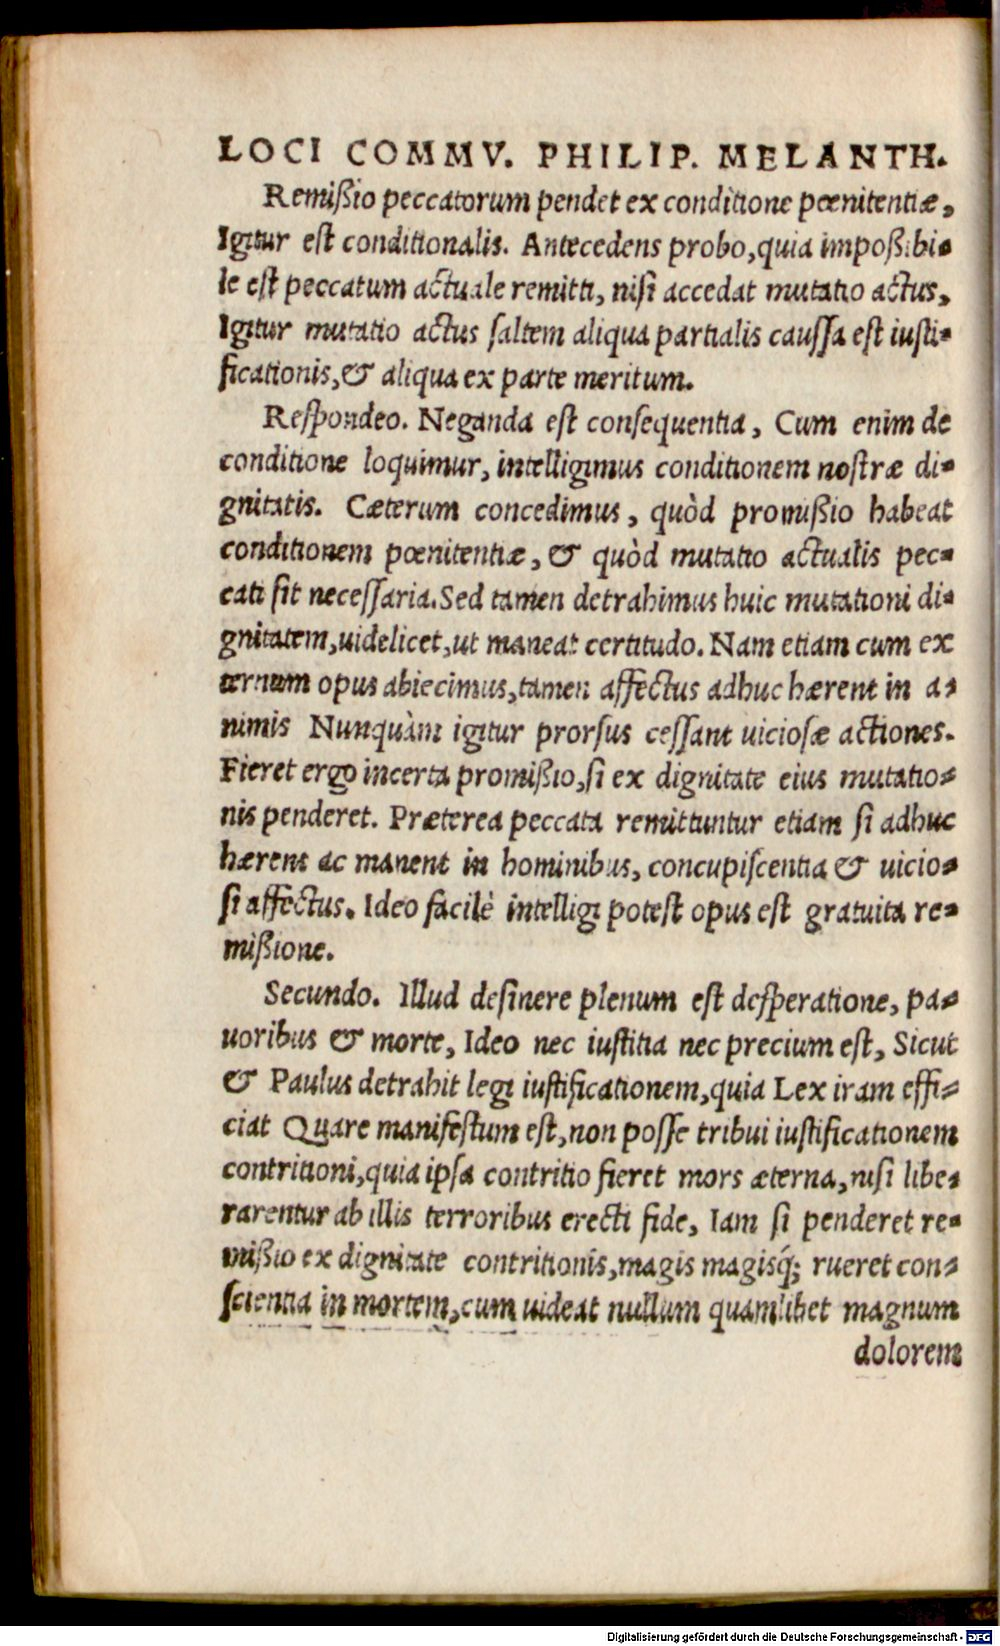 LOCI COMMV. PHILIP. MELANTH.
Remißio peccatorum pendet ex conditione pœnitentiæ,
Igitur est conditionalis. Antecedens probo, quia impoßibi-
le est peccatum actuale remitti, nisi accedat mutatio actus,
Igitur mutatio actus saltem aliqua partialis caussa est iusti-
ficationis, & aliqua ex parte meritum.
Respondeo. Neganda est consequentia, Cum enim de
conditione loquimur, intelligimus conditionem nostræ di-
gnitatis. Cæterum concedimus, quòd promißio habeat
conditionem pœnitentiæ, & quòd mutatio actualis pec-
cati sit necessaria. Sed tamen detrahimus huic mutationi di-
gnitatem, uidelicet, ut maneat certitudo. Nam etiam cum ex
ternum opus abiecimus, tamen affectus adhuc hærent in a-
nimis Nunquàm igitur prorsus cessant uiciosæ actiones.
Fieret ergo incerta promißio, si ex dignitate eius mutatio-
nis penderet. Præterea peccata remittuntur etiam si adhuc
hærent ac manent in hominibus, concupiscentia & uicio-
si affectus. Ideo facilè intelligi potest opus est gratuita re-
mißione.
Secundo. Illud desinere plenum est desperatione, pa-
uoribus & morte, Ideo nec iustitia nec precium est, Sicut
& Paulus detrahit legi iustificationem, quia Lex iram effi-
ciat Quare manifestum est, non posse tribui iustificationem
contritioni, quia ipsa contritio fieret mors æterna, nisi libe-
rarentur ab illis terroribus erecti fide, Iam si penderet re-
mißio ex dignitate contritionis, magis magisq́; rueret con-
scientia in mortem, cum uideat nullum quamlibet magnum
dolorem
Digitalisierung gefördert durch die Deutsche Forschungsgemeinschaft - DFG